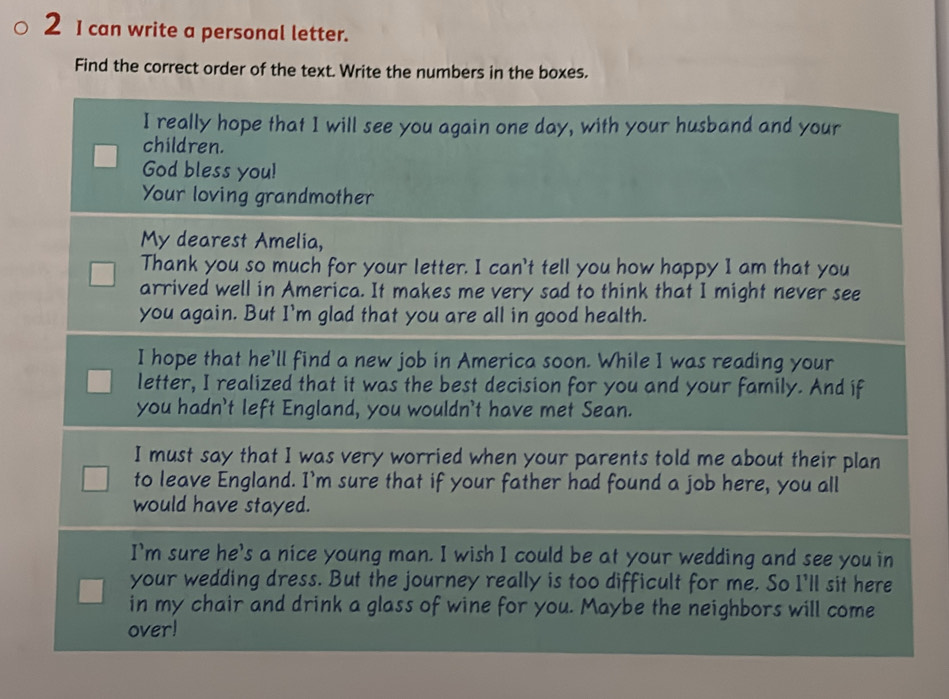 2 I can write a personal letter.
Find the correct order of the text. Write the numbers in the boxes.
I really hope that I will see you again one day, with your husband and your
children.
God bless you!
Your loving grandmother
My dearest Amelia,
Thank you so much for your letter. I can't tell you how happy I am that you
arrived well in America. It makes me very sad to think that I might never see
you again. But I'm glad that you are all in good health.
I hope that he'll find a new job in America soon. While I was reading your
letter, I realized that it was the best decision for you and your family. And if
you hadn't left England, you wouldn't have met Sean.
I must say that I was very worried when your parents told me about their plan
to leave England. I'm sure that if your father had found a job here, you all
would have stayed.
I'm sure he's a nice young man. I wish I could be at your wedding and see you in
your wedding dress. But the journey really is too difficult for me. So I'll sit here
in my chair and drink a glass of wine for you. Maybe the neighbors will come
over!